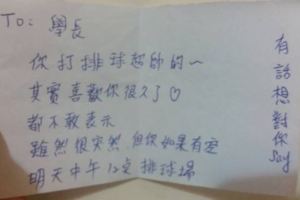 To: 學長
你打排球超帥的~
其實喜歡你很久了♡
都不敢表示
雖然很突然,但你如果有空
明天中午12點排球場
有話想對你say